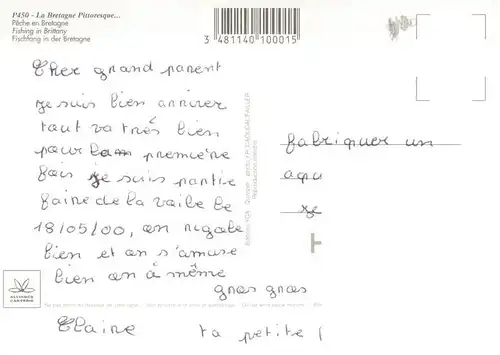 P450 - La Bretagne Pittoresque...
Pêche en Bretagne
Fishing in Brittany
Fischfang in der Bretagne
3 481140 100015
Cher grand parent
je suis bien arriver
tout va très bien
pour première
fois je suis partie
faire de la voile le
18/05/00, on rigole
bien et on s'amuse
bien on à même
fabriquer un
aqu
je
gros gros
Claire
ta petite
ALLIANCE
CARTERIE